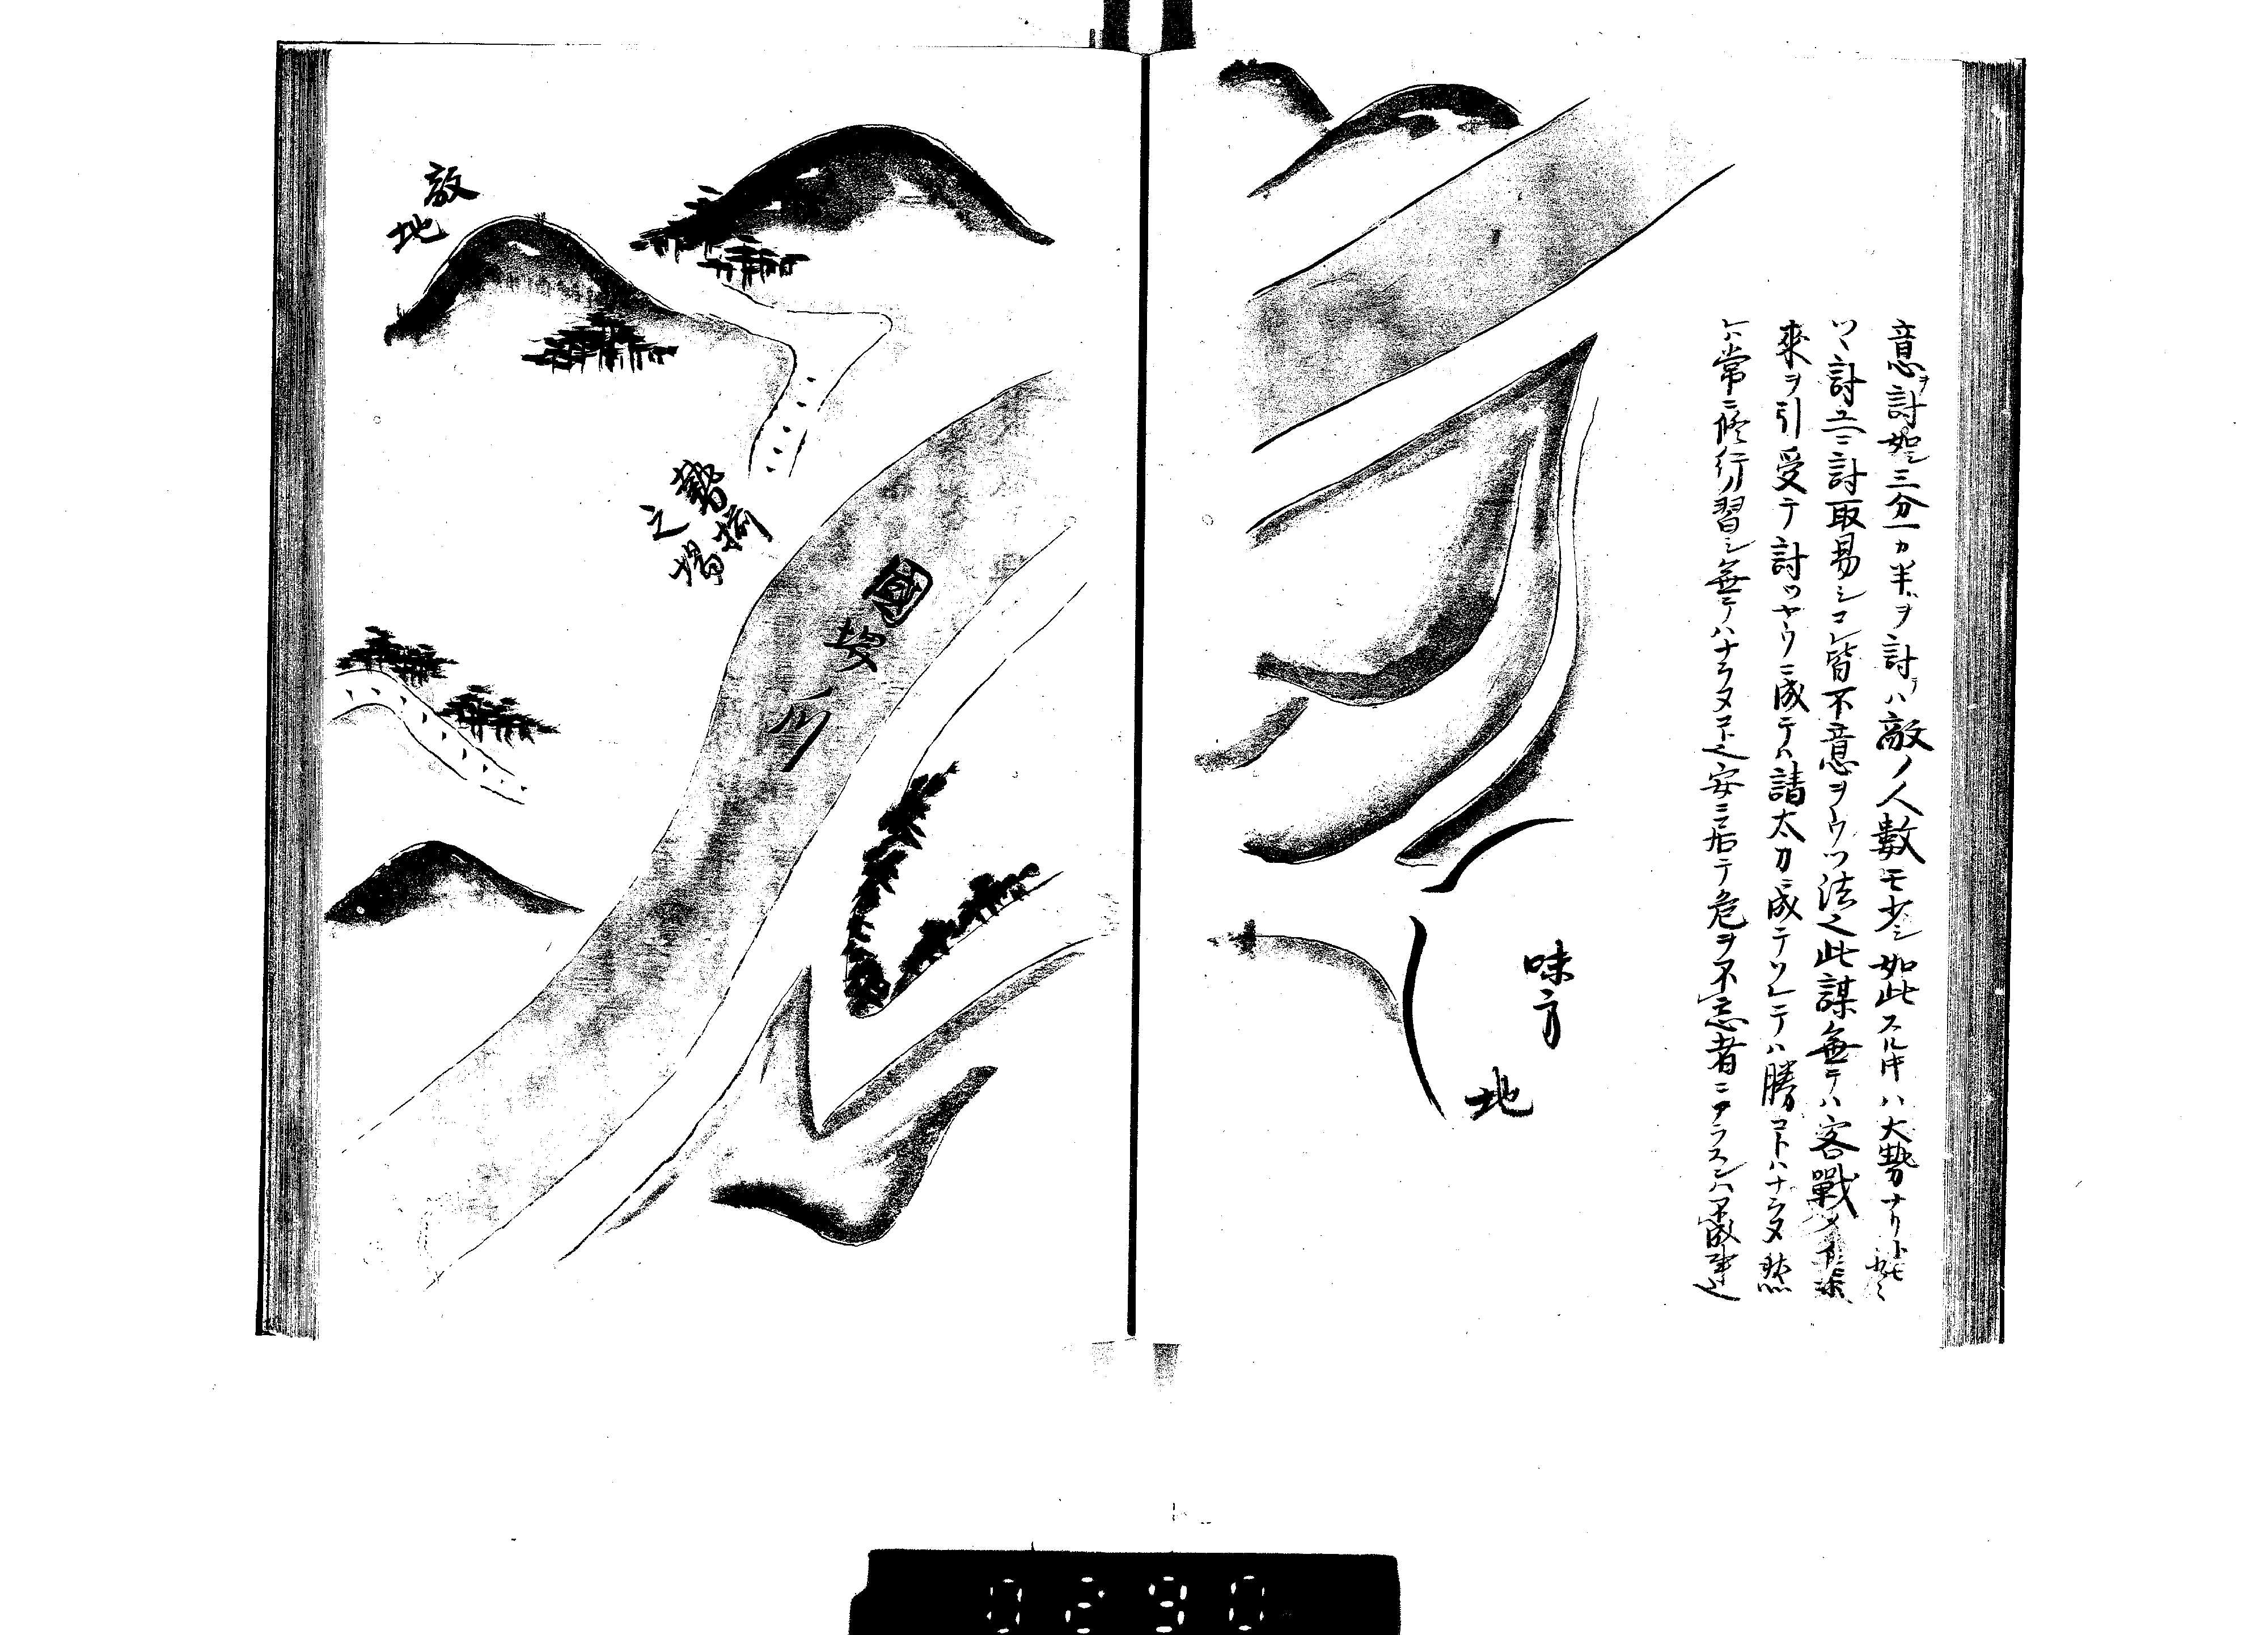 意ヲ討如シ三分一カ半ヲ討テハ敵ノ人數モ少シ如此スル時ハ大勢ナリトモ
ツヽ討ユニ討取易シコレ皆不意ヲウツ法也此謀無テハ客戰ノ
來ヲ引受テ討ツヤウニ成テハ請太刀ニ成テソレテハ勝コトハナラヌ然
レハ常ニ修行習シ無テハナラヌコト也安ニ居テ危ヲ不忘者ニアラスンハ不成事也
味方
地
敵
地
勢揃
之場
國堺川
0290